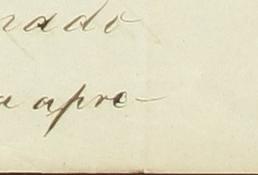 nado
a apre-